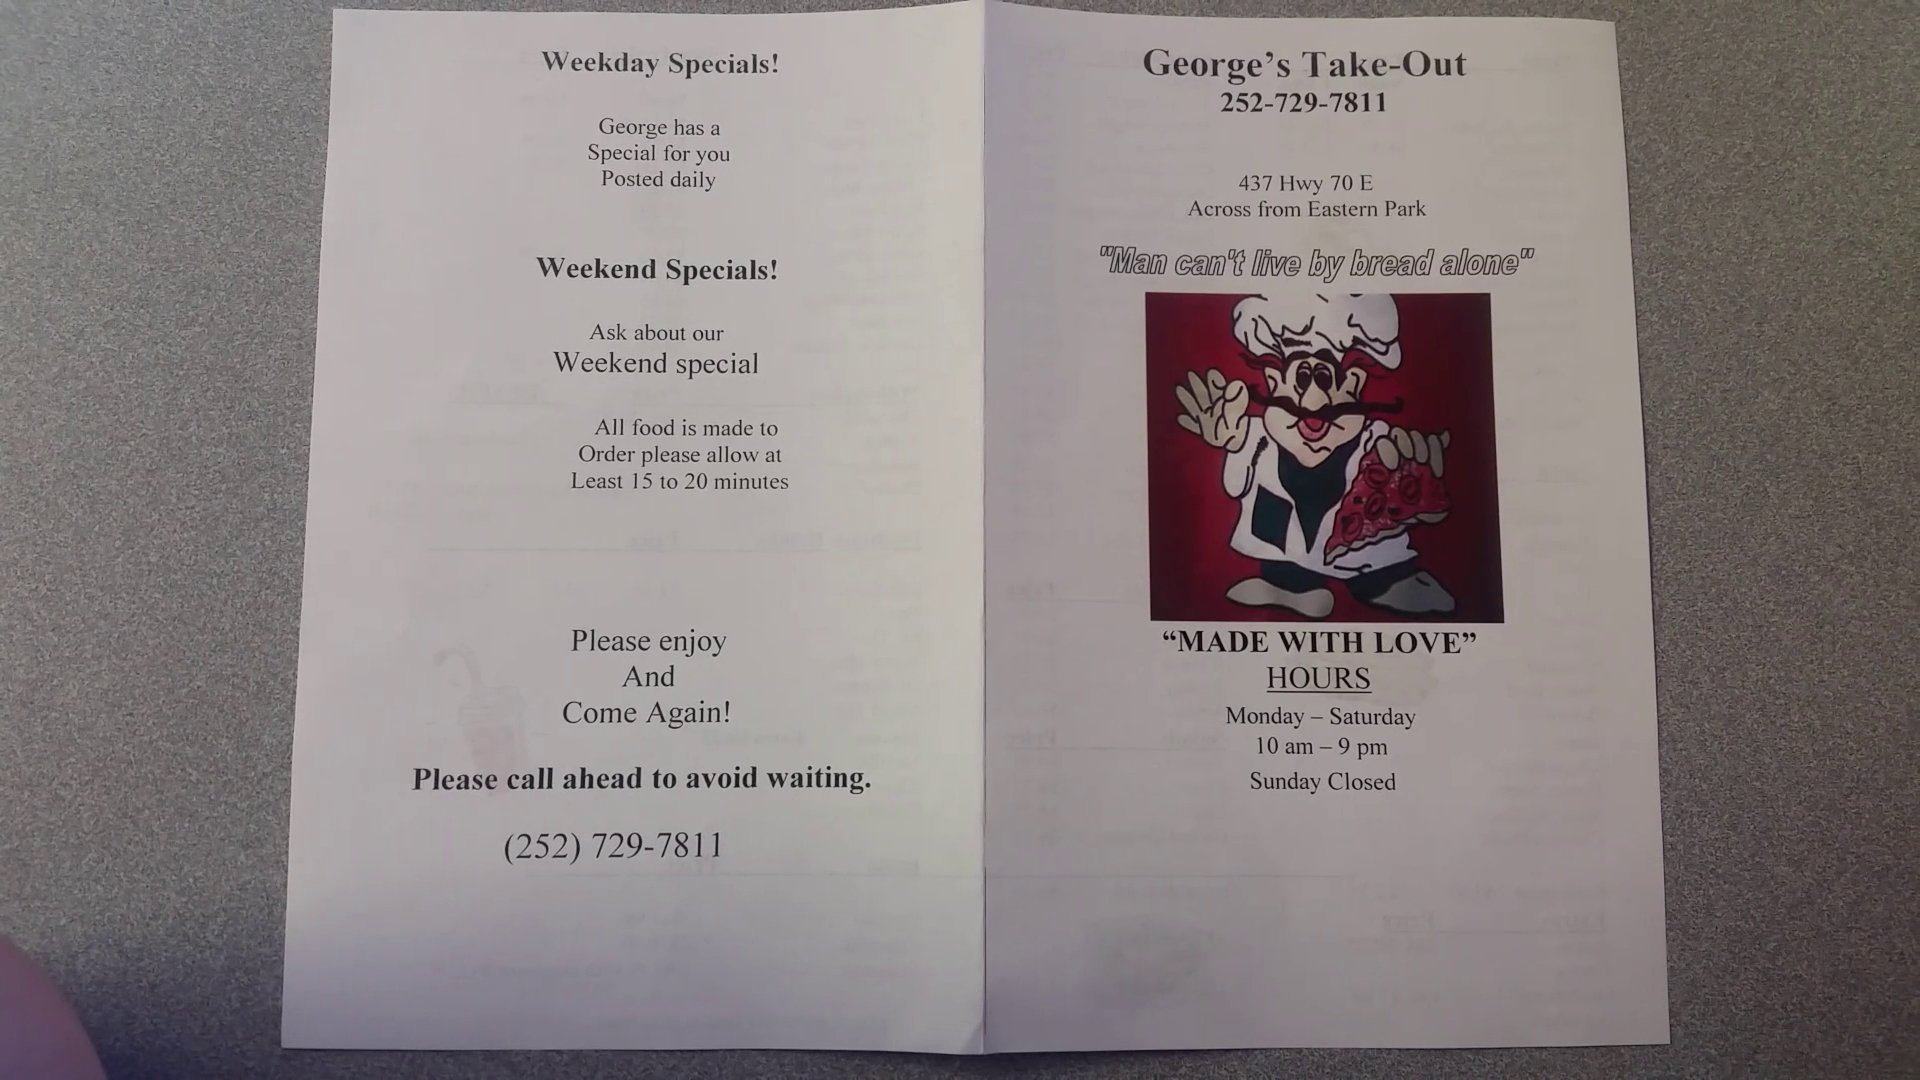 Weekday Specials!
George has a
Special for you
Posted daily
Weekend Specials!
Ask about our
Weekend special
All food is made to
Order please allow at
Least 15 to 20 minutes
Please enjoy
And
Come Again!
Please call ahead to avoid waiting.
(252) 729-7811
George's Take-Out
252-729-7811
437 Hwy 70 E
Across from Eastern Park
"Man can't live by bread alone"
“MADE WITH LOVE”
HOURS
Monday – Saturday
10 am – 9 pm
Sunday Closed